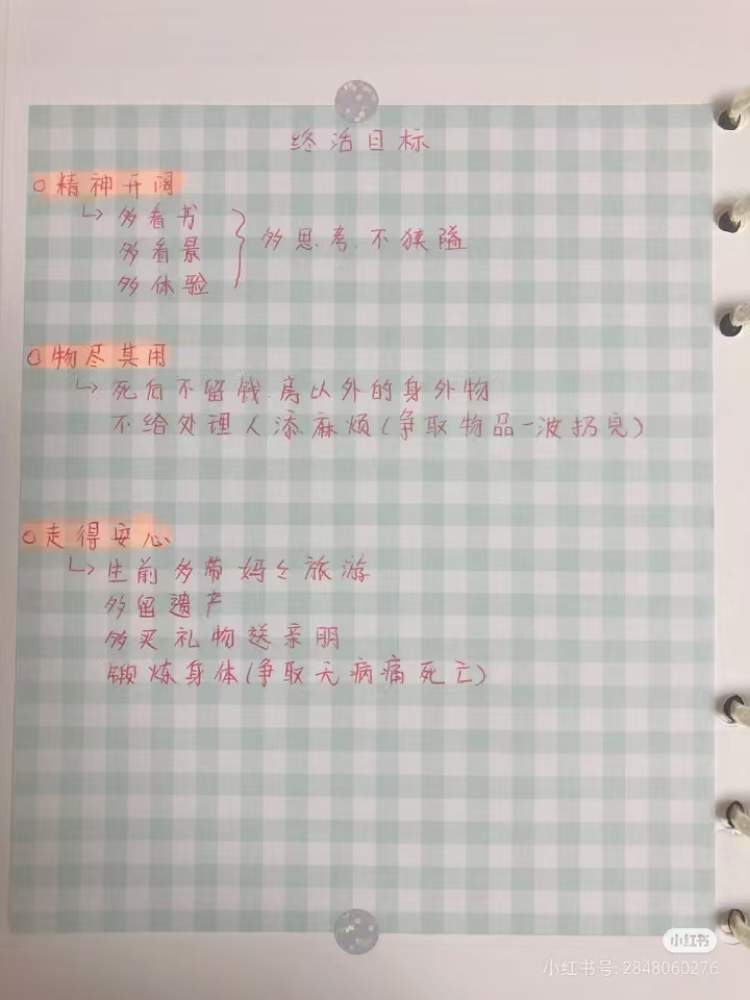 终治目标
精神开阔
多看书
多看景
多体验
多思考、不狭隘
物尽其用
死后不留钱、房以外的身外物
不给处理人添麻烦(争取物品一波扔完)
走得安心
生前多带妈々旅游
多留遗产
多买礼物送亲朋
锻炼身体(争取无病痛死亡)
小红书
小红书号: 2848060276